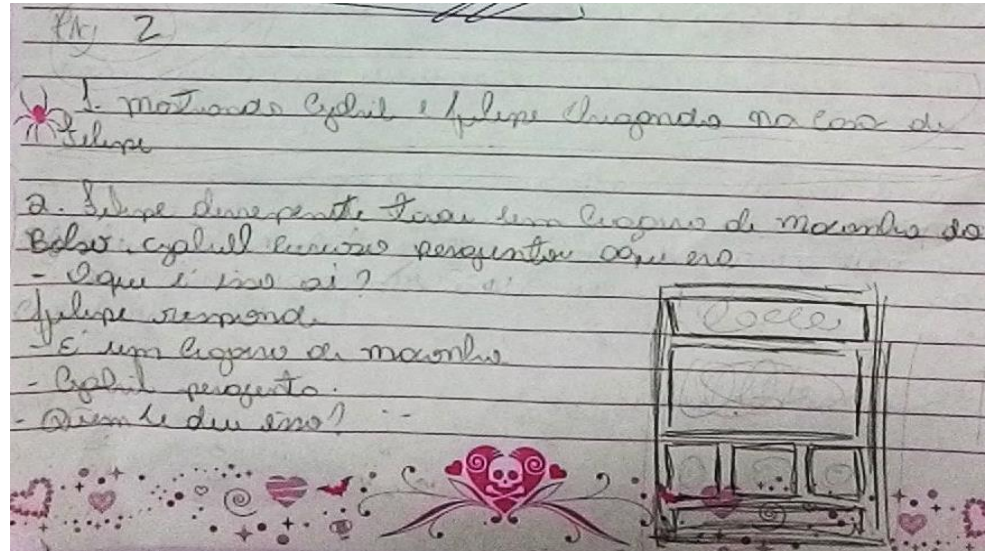 Pag 2
1. mostrando Cybul e felipe chegando na casa de
felipe
2. felipe derrepente tira um cigarro de maconha do
Bolso. cybull curioso perguntou oque era
- Oque é isso ai?
felipe responde
- É um cigarro de maconha
- Cybul pergunta.
- Quem te deu isso?